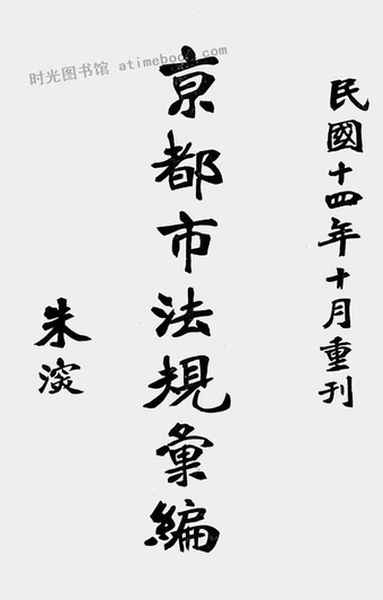 时光图书馆 atimebook.com
民國十四年十月重刊
京都市法規彙編
朱深